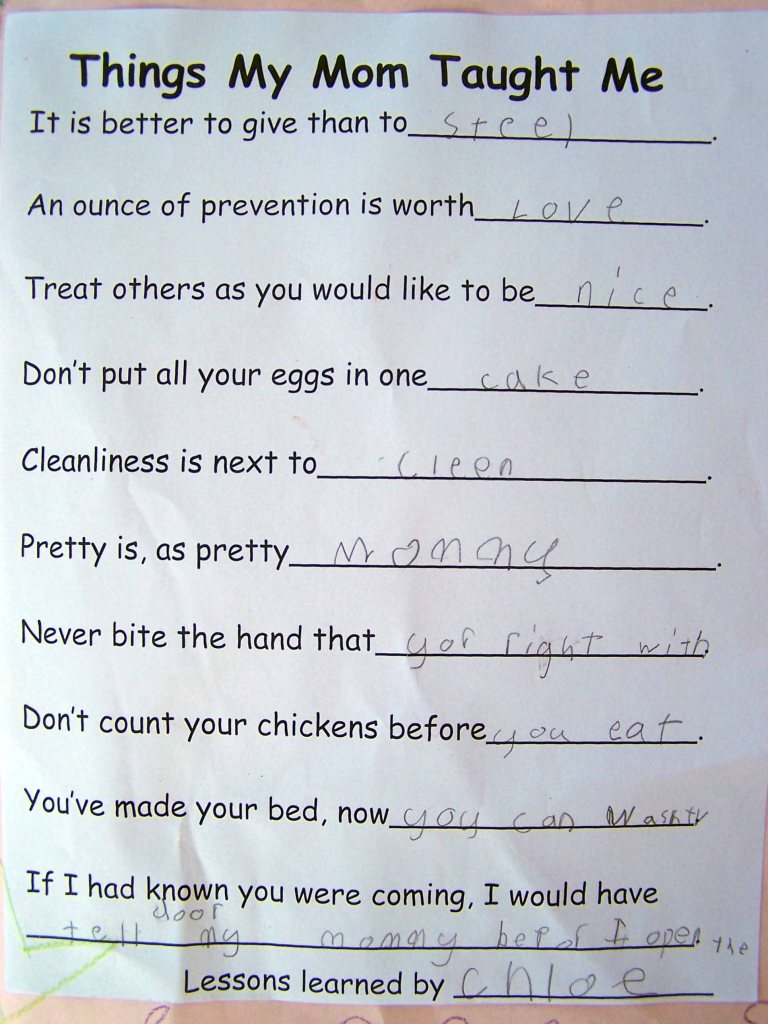 Things My Mom Taught Me
It is better to give than to steel.
An ounce of prevention is worth Love.
Treat others as you would like to be nice.
Don't put all your eggs in one cake.
Cleanliness is next to cleen.
Pretty is, as pretty Mommy.
Never bite the hand that yor right with.
Don't count your chickens before you eat.
You've made your bed, now you can Wash tv
If I had known you were coming, I would have
door
tell my mommy befof I open. the
Lessons learned by Chloe